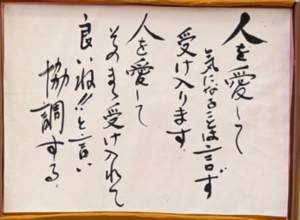 人を愛して
気になることは言わず
受け入ります。
人を愛して
そのまま受け入れて
良いね!!と言い
協調する。